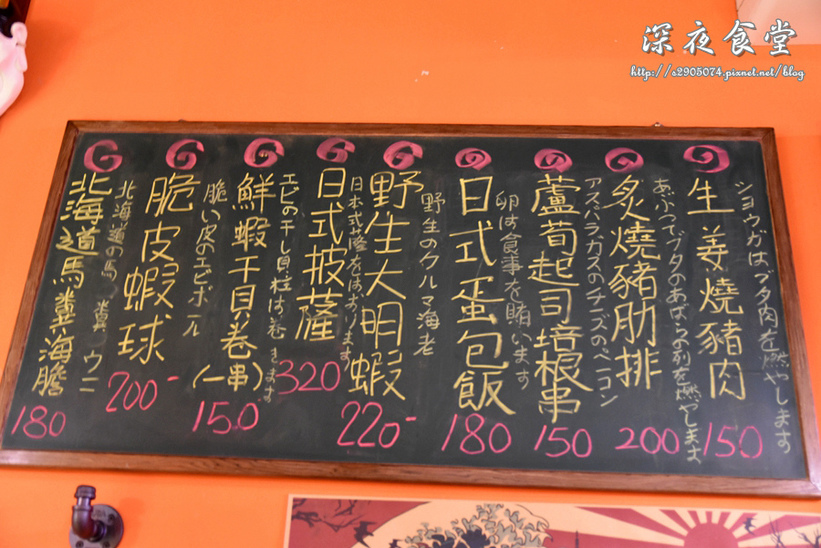 深夜食堂
http://s2905074.pixnet.net/blog
ショウガはブタ肉を燃やします
生姜燒豬肉
150
あぶってブタのあばら列を燃やします
炙燒豬肋排
200
アスパラガスのチーズのベーコン
蘆荀起司培根串
150
卵は食事を賄います
日式蛋包飯
180
野生のクルマ海老
野生大明蝦
220-
日本式薩をはおります
日式披薩
320
エビの干し貝柱は巻きます
鮮蝦干貝卷(一串)
150
脆い皮のエビボール
脆皮蝦球
200-
北海道の馬糞ウニ
北海道馬糞海膽
180